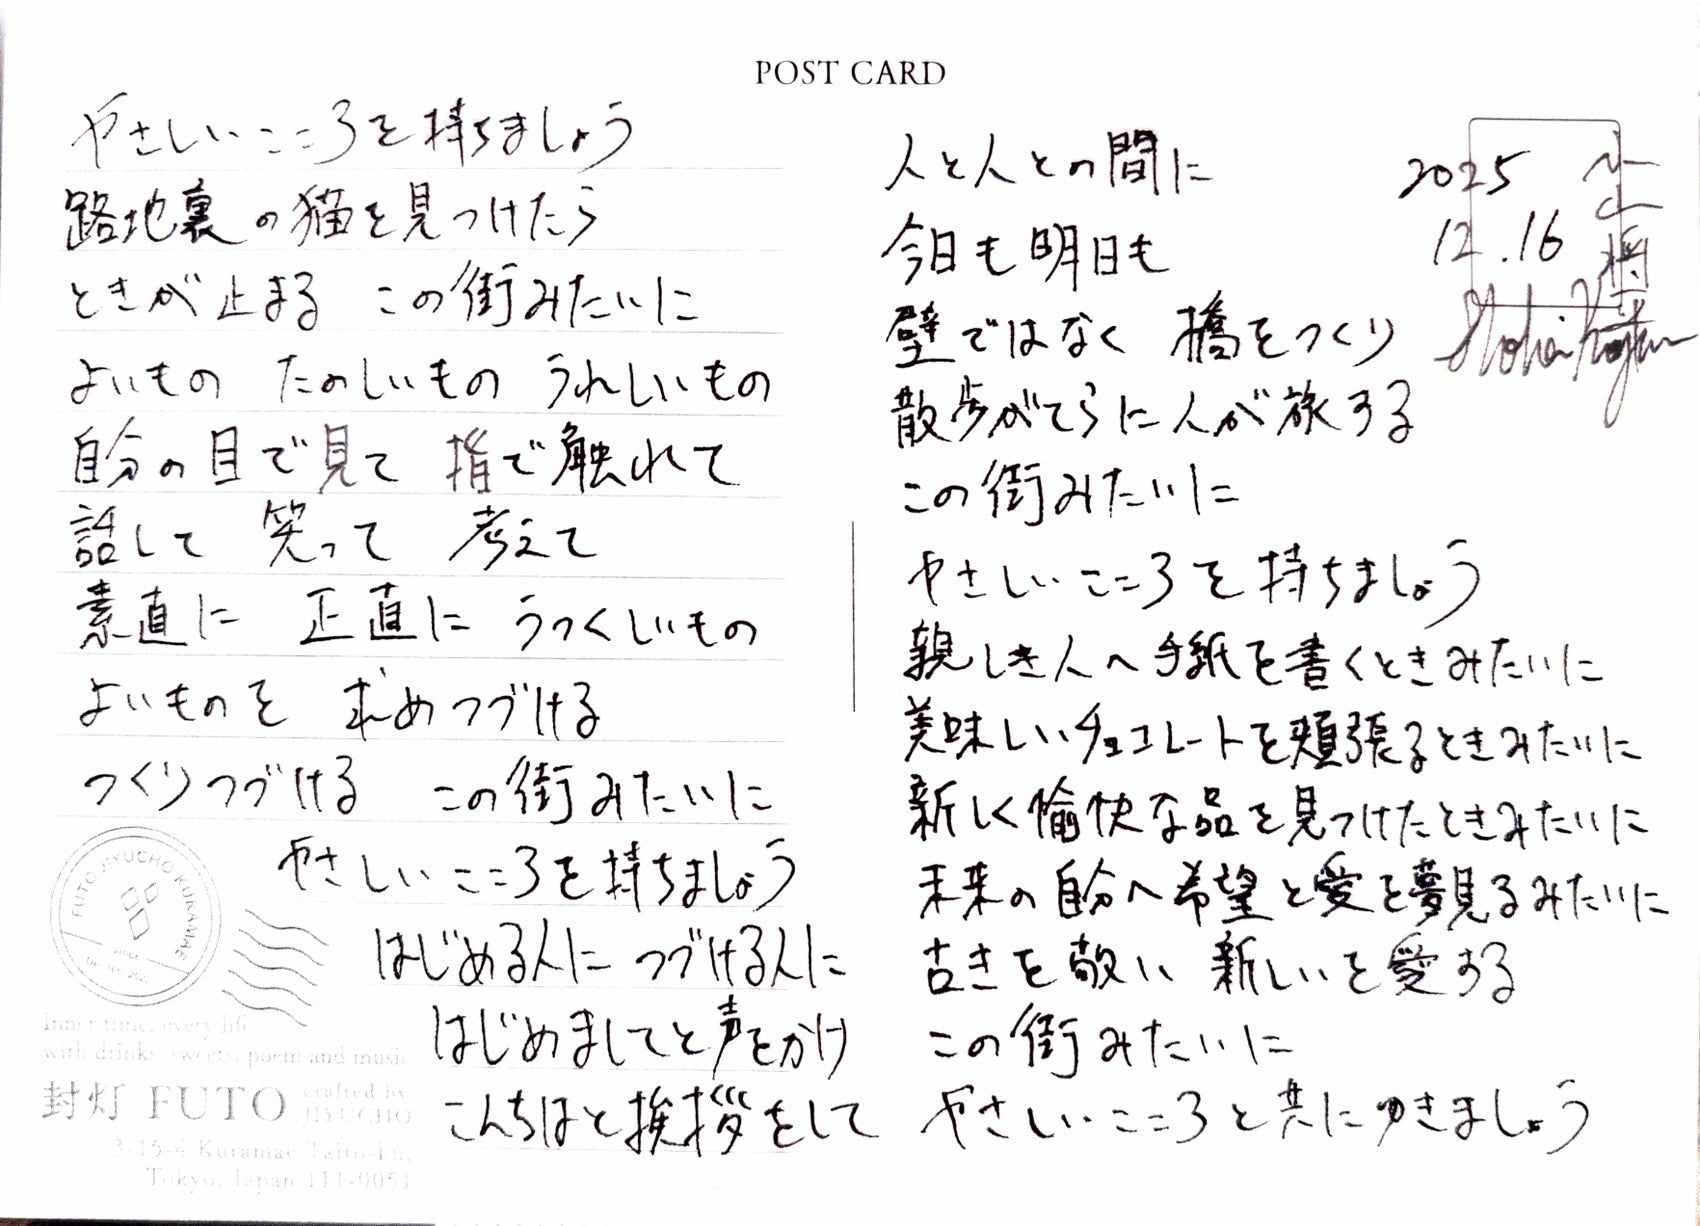 POST CARD
やさしいこころを持ちましょう
路地裏の猫を見つけたら
ときが止まる この街みたいに
よいもの たのしいもの うれしいもの
自分の目で見て 指で触れて
話して 笑って 考えて
素直に 正直に うつくしいもの
よいものを 求めつづける
つくりつづける この街みたいに
やさしいこころを持ちましょう
はじめる人に つづける人に
はじめましてと声をかけ
こんちはと挨拶をして
人と人との間に
今日も明日も
壁ではなく 橋をつくり
散歩がてらに人が旅する
この街みたいに
やさしいこころを持ちましょう
親しき人へ手紙を書くときみたいに
美味しいチョコレートを頬張るときみたいに
新しく愉快な品を見つけたときみたいに
未来の自分へ希望と愛を夢見るみたいに
古きを敬い 新しいを愛する
この街みたいに
やさしいこころと共にゆきましょう
2025
12.16
FUTO JIYUCHO KURAMAE
Inner time, every life
with drinks, sweets, poem and music
封灯 FUTO crafted by JIYUCHO
3-15-4 Kuramae Taito-ku,
Tokyo, Japan 111-0051